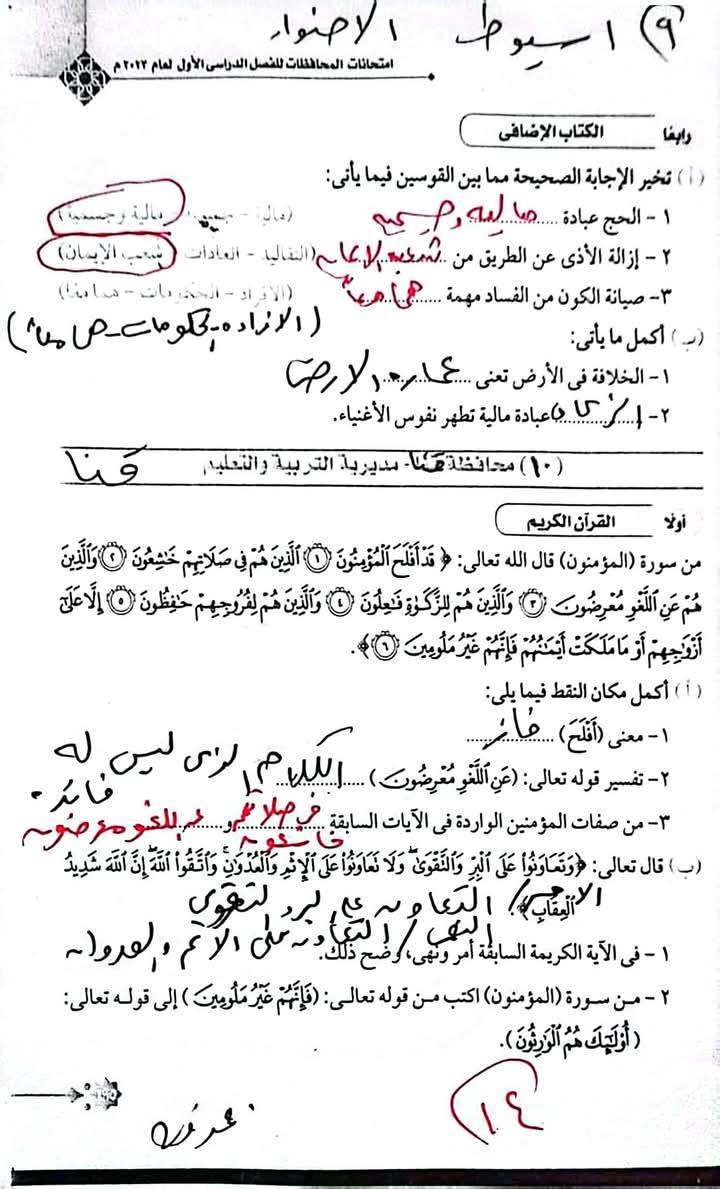 ٩) اسيوط الاصنوار
امتحانات المحافظات للفصل الدراسى الأول لعام ٢٠٢٣ م
رابعًا الكتاب الإضافى
(أ) تخير الإجابة الصحيحة مما بين القوسين فيما يأتى:
١- الحج عبادة ماليه وجسميه (مالية - جسمية - مالية وجسمية)
٢- إزالة الأذى عن الطريق من شعب الايمان (التقاليد - العادات - شعب الإيمان)
٣- صيانة الكون من الفساد مهمة هما معا (الأفراد - الحكومات - هما معًا)
(الافراد - الحكومات - هما معا)
(ب) أكمل ما يأتى:
١- الخلافة فى الأرض تعنى عماره الارض
٢- الزكاه عبادة مالية تطهر نفوس الأغنياء.
(١٠) محافظة قنا - مديرية التربية والتعليم قنا
أولا القرآن الكريم
من سورة (المؤمنون) قال الله تعالى: ﴿ قَدْ أَفْلَحَ الْمُؤْمِنُونَ ١ الَّذِينَ هُمْ فِي صَلَاتِهِمْ خَاشِعُونَ ٢ وَالَّذِينَ
هُمْ عَنِ اللَّغْوِ مُعْرِضُونَ ٣ وَالَّذِينَ هُمْ لِلزَّكَوٰةِ فَاعِلُونَ ٤ وَالَّذِينَ هُمْ لِفُرُوجِهِمْ حَافِظُونَ ٥ إِلَّا عَلَىٰ
أَزْوَاجِهِمْ أَوْ مَا مَلَكَتْ أَيْمَانُهُمْ فَإِنَّهُمْ غَيْرُ مَلُومِينَ ٦ ﴾.
(أ) أكمل مكان النقط فيما يلى:
١- معنى (أَفْلَحَ) فاز
٢- تفسير قوله تعالى: (عَنِ اللَّغْوِ مُعْرِضُونَ) الكلام الذى ليس له فائدة
٣- من صفات المؤمنين الواردة فى الآيات السابقة فى صلاتهم خاشعون و عن اللغو معرضون
(ب) قال تعالى: ﴿وَتَعَاوَنُوا عَلَى الْبِرِّ وَالتَّقْوَىٰ وَلَا تَعَاوَنُوا عَلَى الْإِثْمِ وَالْعُدْوَانِ وَاتَّقُوا اللَّهَ إِنَّ اللَّهَ شَدِيدُ
الْعِقَابِ﴾. الامر / التعاون على البر والتقوى
النهى / التعاون على الاثم والعدوان
١- فى الآية الكريمة السابقة أمر ونهى، وضح ذلك.
٢- من سورة (المؤمنون) اكتب من قوله تعالى: (فَإِنَّهُمْ غَيْرُ مَلُومِينَ) إلى قوله تعالى:
(أُوْلَٰئِكَ هُمُ الْوَارِثُونَ).
١٤